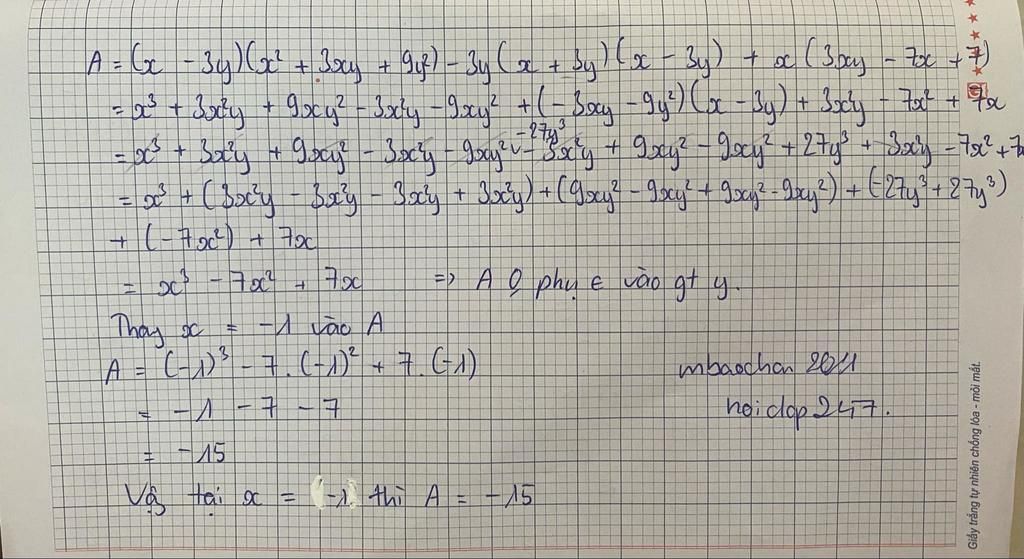 A = (x - 3y)(x² + 3xy + 9y²) - 3y(x + 3y)(x - 3y) + x(3xy - 7x + 7)
= x³ + 3x²y + 9xy² - 3x²y - 9xy² + (-3xy - 9y²)(x - 3y) + 3x²y - 7x² + 7x
= x³ + 3x²y + 9xy² - 3x²y - 9xy² - 27y³ - 3x²y + 9xy² - 9xy² + 27y³ + 3x²y - 7x² + 7x
= x³ + (3x²y - 3x²y - 3x²y + 3x²y) + (9xy² - 9xy² + 9xy² - 9xy²) + (-27y³ + 27y³)
+ (-7x²) + 7x
= x³ - 7x² + 7x => A phụ ∈ vào gt y.
Thay x = -1 vào A
A = (-1)³ - 7.(-1)² + 7.(-1)
= -1 - 7 - 7
= -15
Vậy tại x = (-1) thì A = -15
mbaochan 2011
hoidap247.
Giấy trắng tự nhiên chống lóa - mỏi mắt.